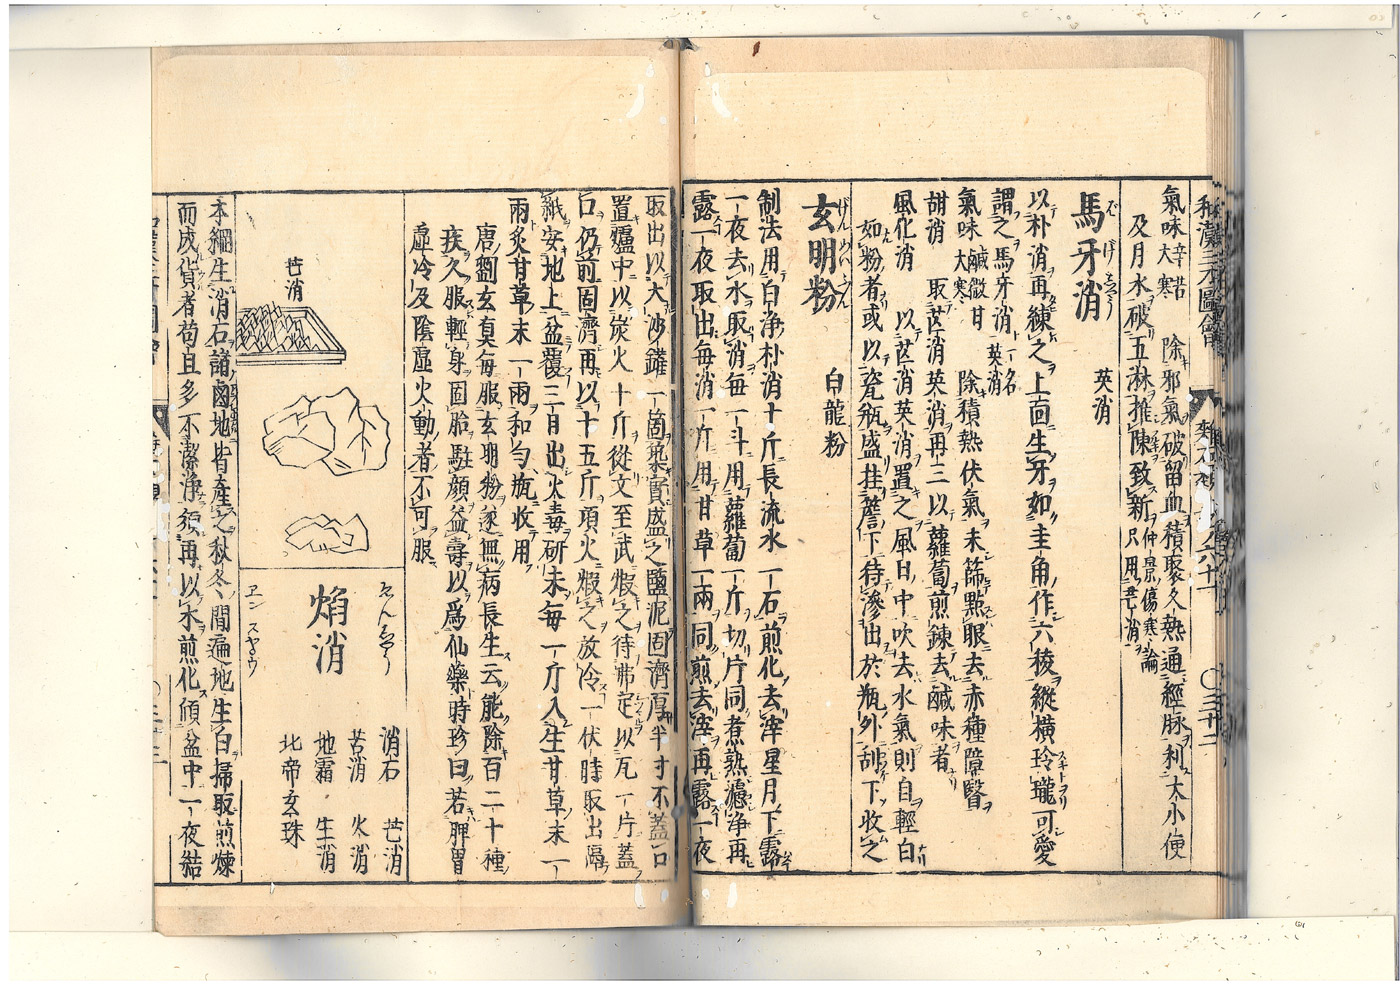 和漢三才圖會 雜石類 卷ノ六十一 〇三十二
氣味 辛苦 大寒 除邪氣破留血積聚久熱通經脉利大小便
及月水破五淋推陳致新 仲景傷寒論 只用芒消
馬牙消 ばげしやう 英消
以朴消再練之上面生牙如圭角作六稜縱橫玲瓏可愛
謂之馬牙消 一名英消
氣味 鹹微甘 大寒 除積熱伏氣末篩點眼去赤種障瞖
胡消 取芒消英消再三以蘿蔔煎鍊去鹹味者
風化消 以芒消英消置之風日中吹去水氣則自輕白
如粉者或以瓷瓶盛挂簷下待滲出於瓶外刮下收之
玄明粉 げんめいふん 白龍粉
制法用白淨朴消十斤長流水一石煎化去滓星月下露
一夜去水取消每一斗用蘿蔔一斤切片同煮熟濾淨再
露一夜取出每消一斤用甘草一兩同煎去滓再露一夜
取出以大沙鑵一箇築實盛之鹽泥固濟厚半寸不蓋口
置爐中以炭火十斤從文至武煆之待沸定以瓦一片蓋
口仍前固濟再以十五斤頂火煆之放冷一伏時取出隔
紙安地上盆覆三日出火毒研末每一斤入生甘草末一
兩炙甘草末一兩和勻瓶收用
唐劉玄真每服玄明粉遂無病長生云能除百二十種
疾久服輕身固胎駐顔益壽以爲仙藥時珍曰若脾胃
虛冷及陰虛火動者不可服
芒消
焔消 ゑんしやう ヱンスヤウ
消石 芒消
苦消 火消
地霜 生消
北帝玄珠
本綱生消石諸鹵地皆產之秋冬間遍地生白掃取煎煉
而成貨者苟且多不潔淨須再以水煎化傾盆中一夜結